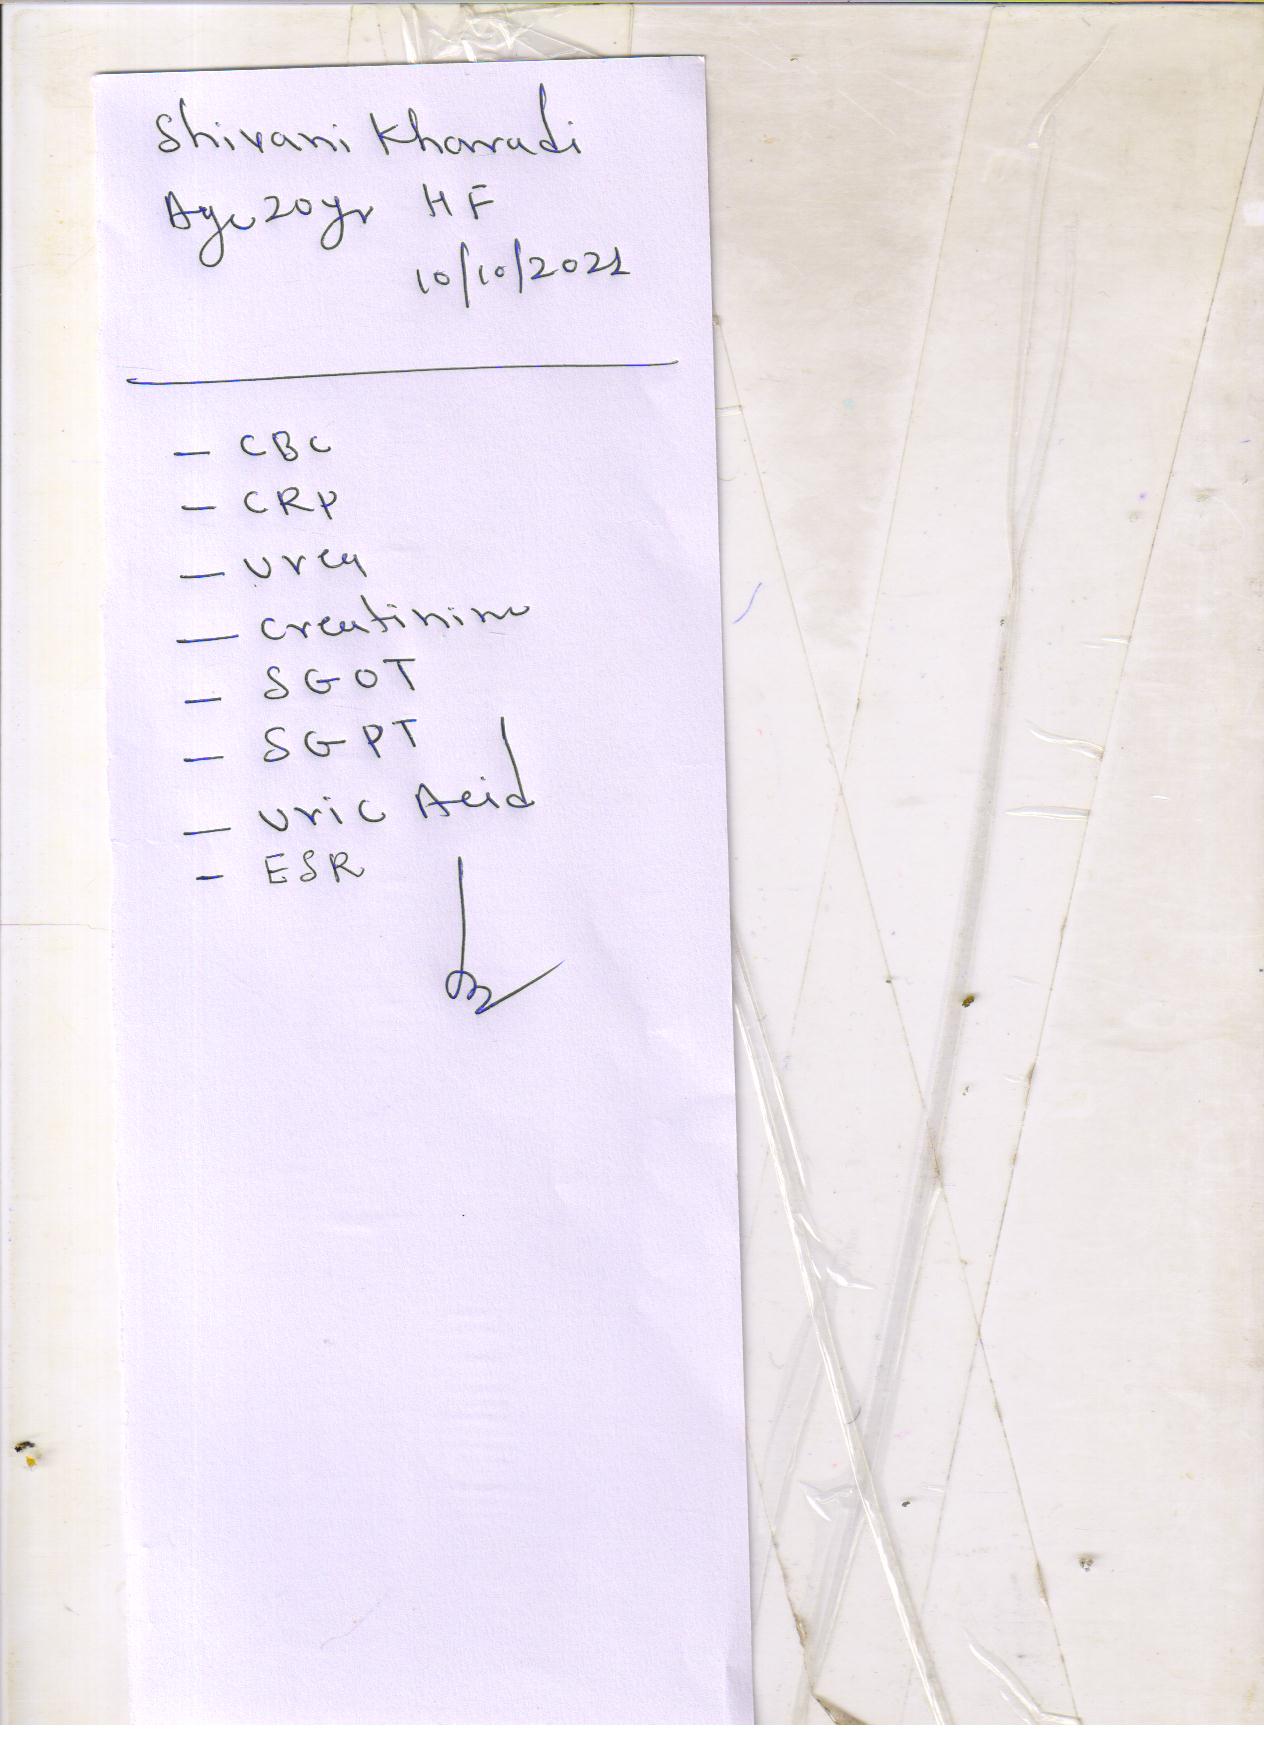 Shivani Kharadi
Age 20yr HF
10/10/2021
- CBC
- CRP
- Urea
- Creatinine
- SGOT
- SGPT
- Uric Acid
- ESR